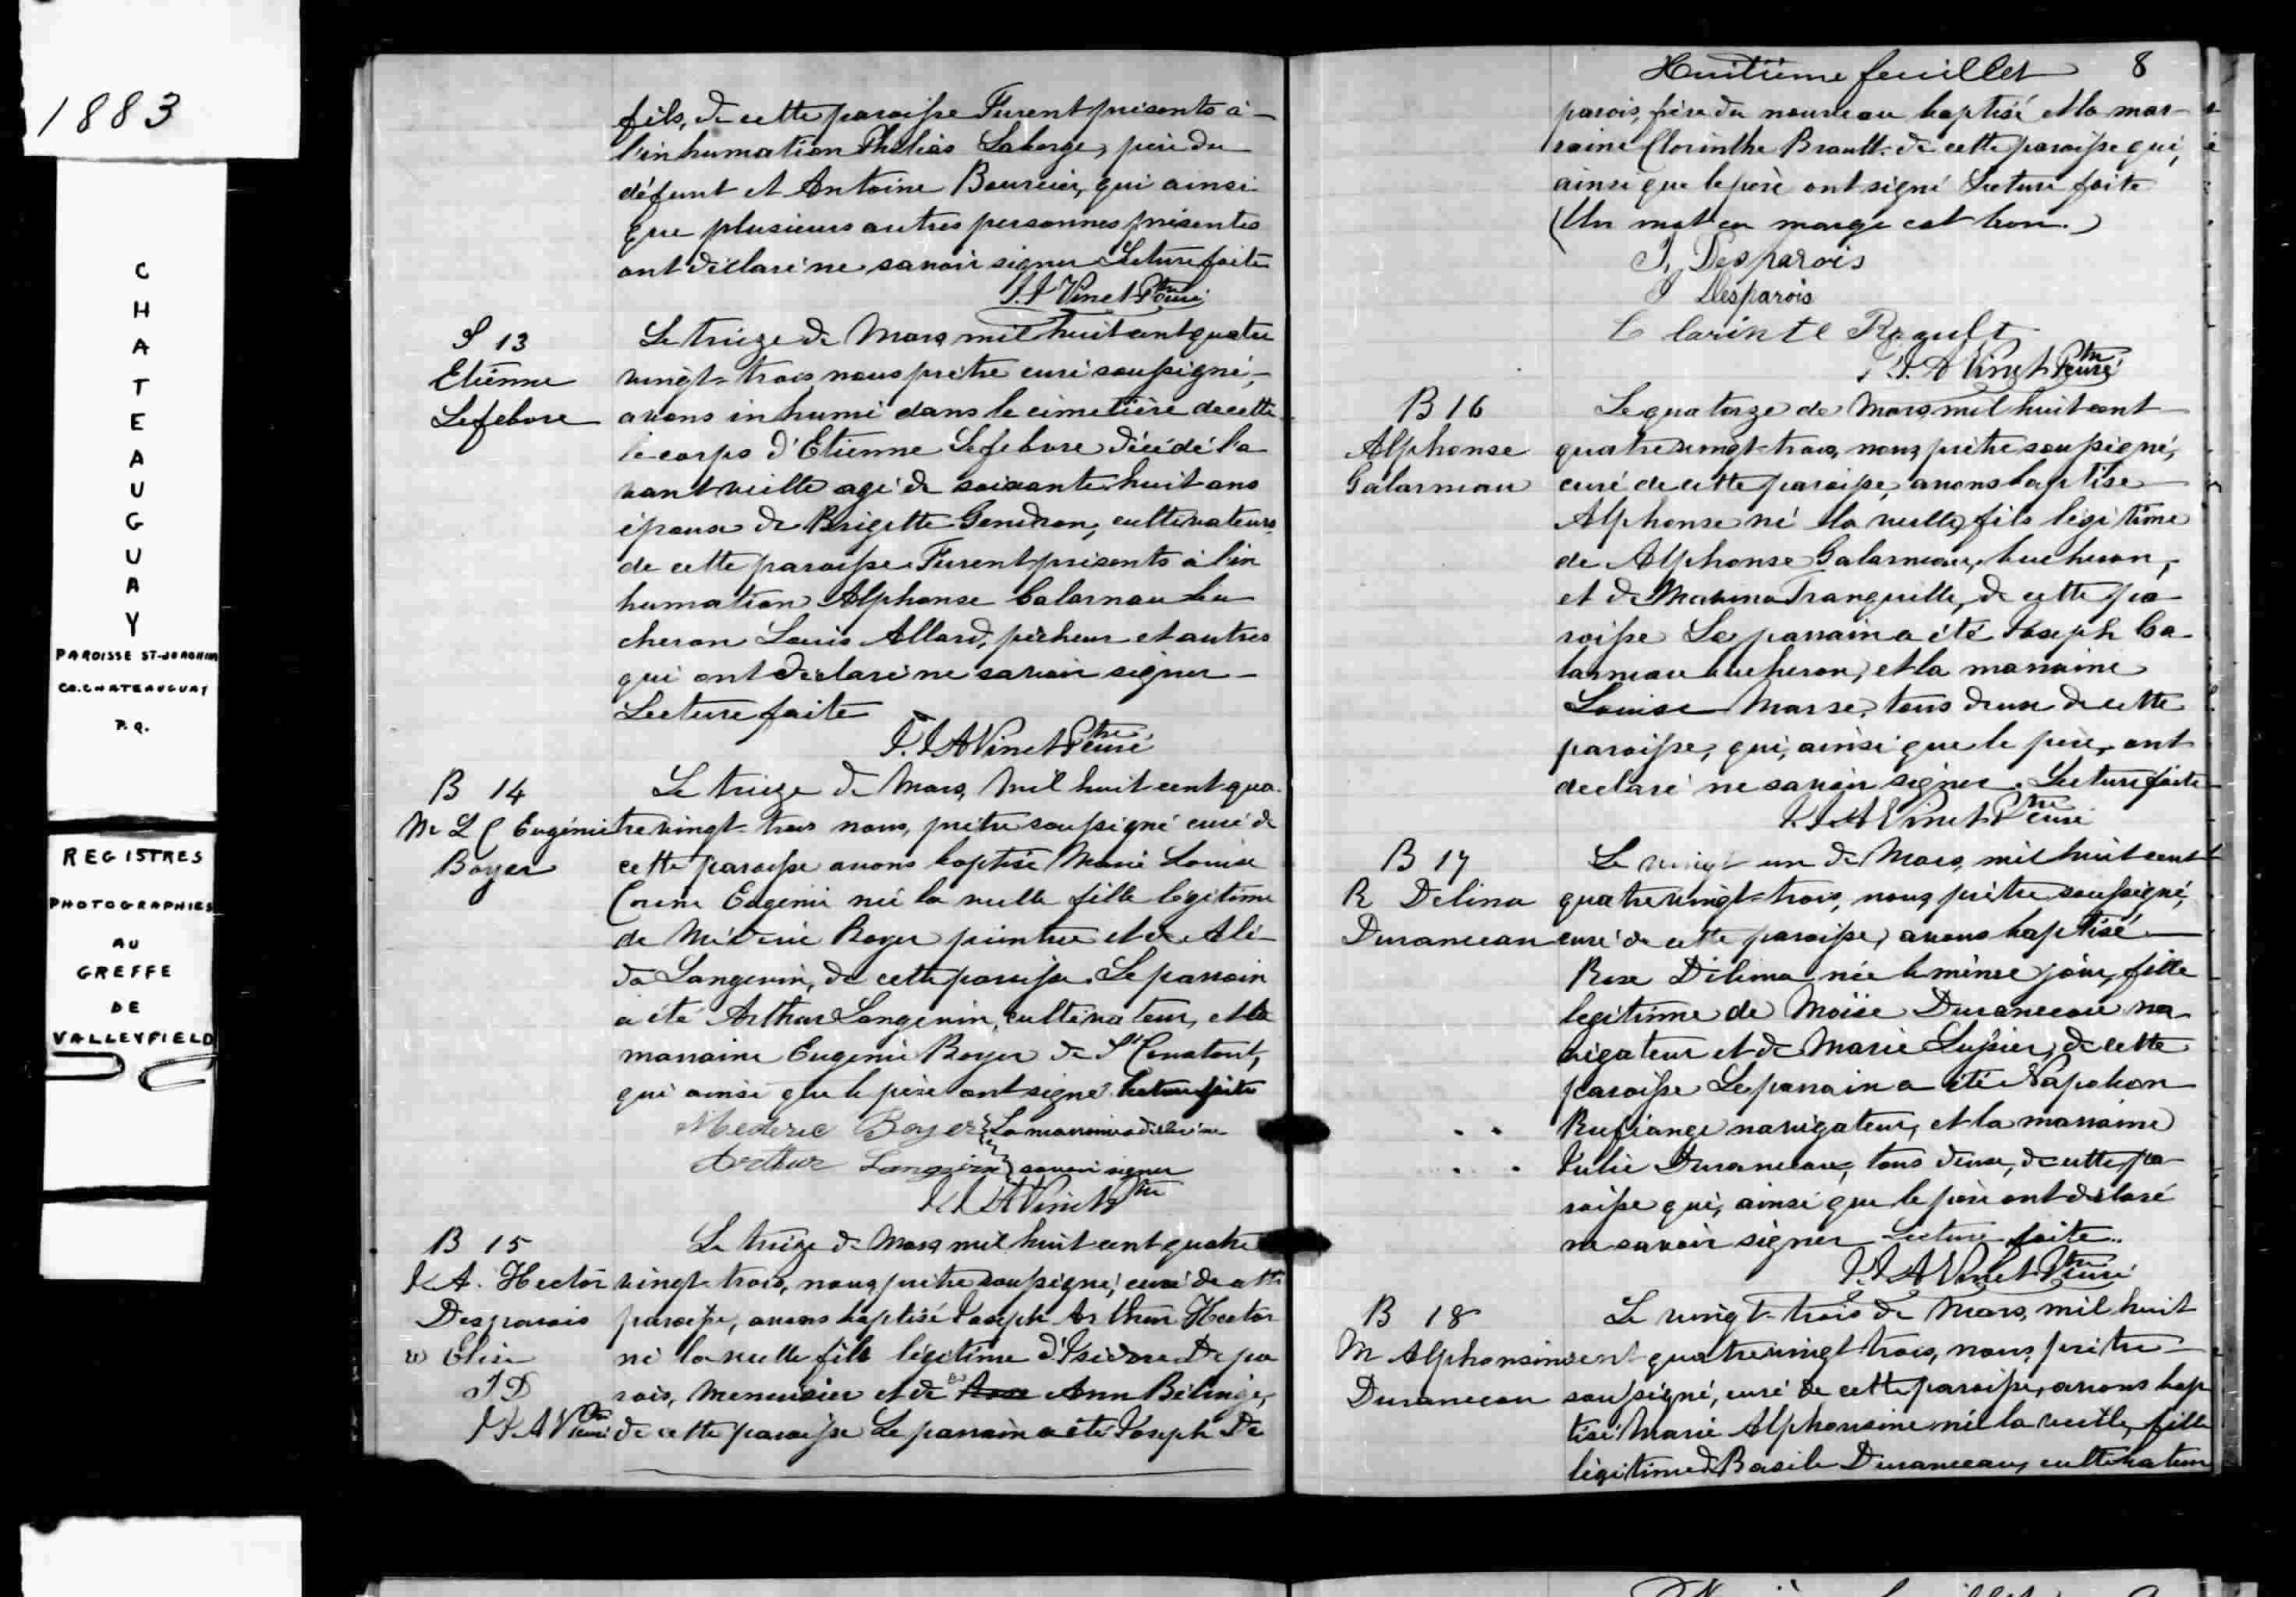 1883
CHATEAUGUAY
PAROISSE ST-JOACHIM
CO. CHATEAUGUAY
P.Q.
REGISTRES
PHOTOGRAPHIES
AU
GREFFE
DE
VALLEYFIELD
fils, de cette paroisse Furent présents à
l'inhumation Philias Laberge, père du
défunt et Antoine Boursier, qui ainsi
que plusieurs autres personnes présentes
ont déclaré ne savoir signer Lecture faite
J.J. Vinet Ptre curé
S 13
Etienne
Lefebvre
Le treize de Mars mil huit cent quatre
vingt-trois, nous prêtre curé soussigné,
avons inhumé dans le cimetière de cette
le corps d'Etienne Lefebvre décédé l'a
vant veille agé de soixante huit ans
époux de Brigitte Gendron, cultivateur
de cette paroisse. Furent présents à l'in
humation Alphonse Galarnau bu
cheron Louis Allard, pêcheur et autres
qui ont déclaré ne savoir signer
Lecture faite
J.J.A Vinet Ptre curé
B 14
M L C Eugénie
Boyer
Le treize de Mars, mil huit cent qua
tre vingt-trois nous, prêtre soussigné curé de
cette paroisse avons baptisé Marie Louise
Corine Eugénie née la veille fille légitime
de Médéric Boyer peintre et de Alé
da Langevin, de cette paroisse. Le parrain
a été Arthur Langevin, cultivateur, et la
marraine Eugénie Boyer de St Constant,
qui ainsi que le père ont signé lecture faite
Mederic Boyer } La marraine a déclaré ne
Arthur Langevin } savoir signer
J.J.A Vinet Ptre
B 15
J. A. Hector
Desparois
Elise
J D
J J A V Ptre curé
Le treize de Mars mil huit cent quatre
vingt-trois, nous, prêtre soussigné, curé de cette
paroisse, avons baptisé Joseph Arthur Hector
né la veille fils légitime d'Isidore Depa
rois, menuisier et de Ann Bélinge,
de cette paroisse Le parrain a été Joseph De
Huitième feuillet 8
parois, frère du nouveau baptisé et la mar
raine Clorinthe Brault de cette paroisse qui,
ainsi que le père ont signé Lecture faite
(Un mot en marge est bon.)
J. Desparois
I Desparois
Clarinte Brault
J.J.A Vinet Ptre curé
B 16
Alphonse
Galarneau
Le quatorze de Mars, mil huit cent
quatre vingt-trois, nous, prêtre soussigné,
curé de cette paroisse, avons baptisé
Alphonse né la veille, fils légitime
de Alphonse Galarneau, bucheron,
et de Tranquille, de cette pa
roisse Le parrain a été Joseph Ga
larneau bucheron, et la marraine
Louise Marse, tous deux de cette
paroisse, qui, ainsi que le père, ont
declaré ne savoir signer. Lecture faite
J.J.A Vinet Ptre curé
B 17
R Delima
Duranceau
Le vingt un de Mars, mil huit cent
quatre vingt-trois, nous, prêtre soussigné,
curé de cette paroisse, avons baptisé
Rose Délima née le même jour, fille
legitime de Moïse Duranceau na
vigateur et de Marie Lussier, de cette
paroisse Le parrain a été Napoleon
Rufiange navigateur, et la marraine
Julie Duranceau, tous deux, de cette pa
roisse qui, ainsi que le père ont déclaré
ne savoir signer Lecture faite.
J.J.A Vinet Ptre curé
B 18
M Alphonsine
Duranceau
Le vingt-trois de Mars, mil huit
cent quatre vingt trois, nous, prêtre
soussigné, curé de cette paroisse, avons bap
tisé Marie Alphonsine née la veille, fille
légitime de Basile Duranceau, cultivateur